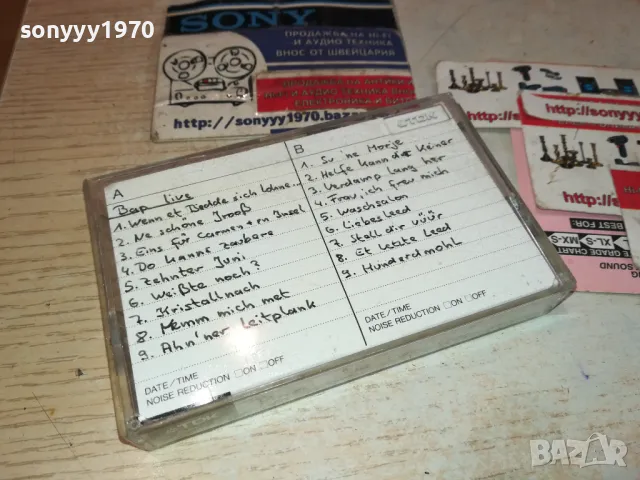 sonyyy1970
SONY
ПРОДАЖБА НА HI-FI
И АУДИО ТЕХНИКА
ВНОС ОТ ШВЕЙЦАРИЯ
ПРОДАЖБА НА АНТИКИ
ЕЛЕКТРОНИКА И
http://sonyyy1970.baza
http://so
http://
http://sony
A
Bap live
1. Wenn et Bedde sich lohne...
2. Ne schöne Jrooß
3. Eins für Carmen + en Insel
4. Do kanns zaubere
5. Zehnter Juni
6. Weißte noch?
7. Kristallnach
8. Nemm mich met
9. Ahn'ner Leitplank
DATE/TIME
NOISE REDUCTION □ON □OFF
B
TDK
1. Su ne Morje
2. Helfe kann dir keiner
3. Verdamp lang her
4. Frau, ich freu mich
5. Waschsalon
6. Liebesleed
7. Stell dir vüür
8. Et letzte Leed
9. Hundertmohl
DATE/TIME
NOISE REDUCTION □ON □OFF
BEST FOR:
MX-S
XL-S
E GRADE CHART
SOUND
BAZAR
bg